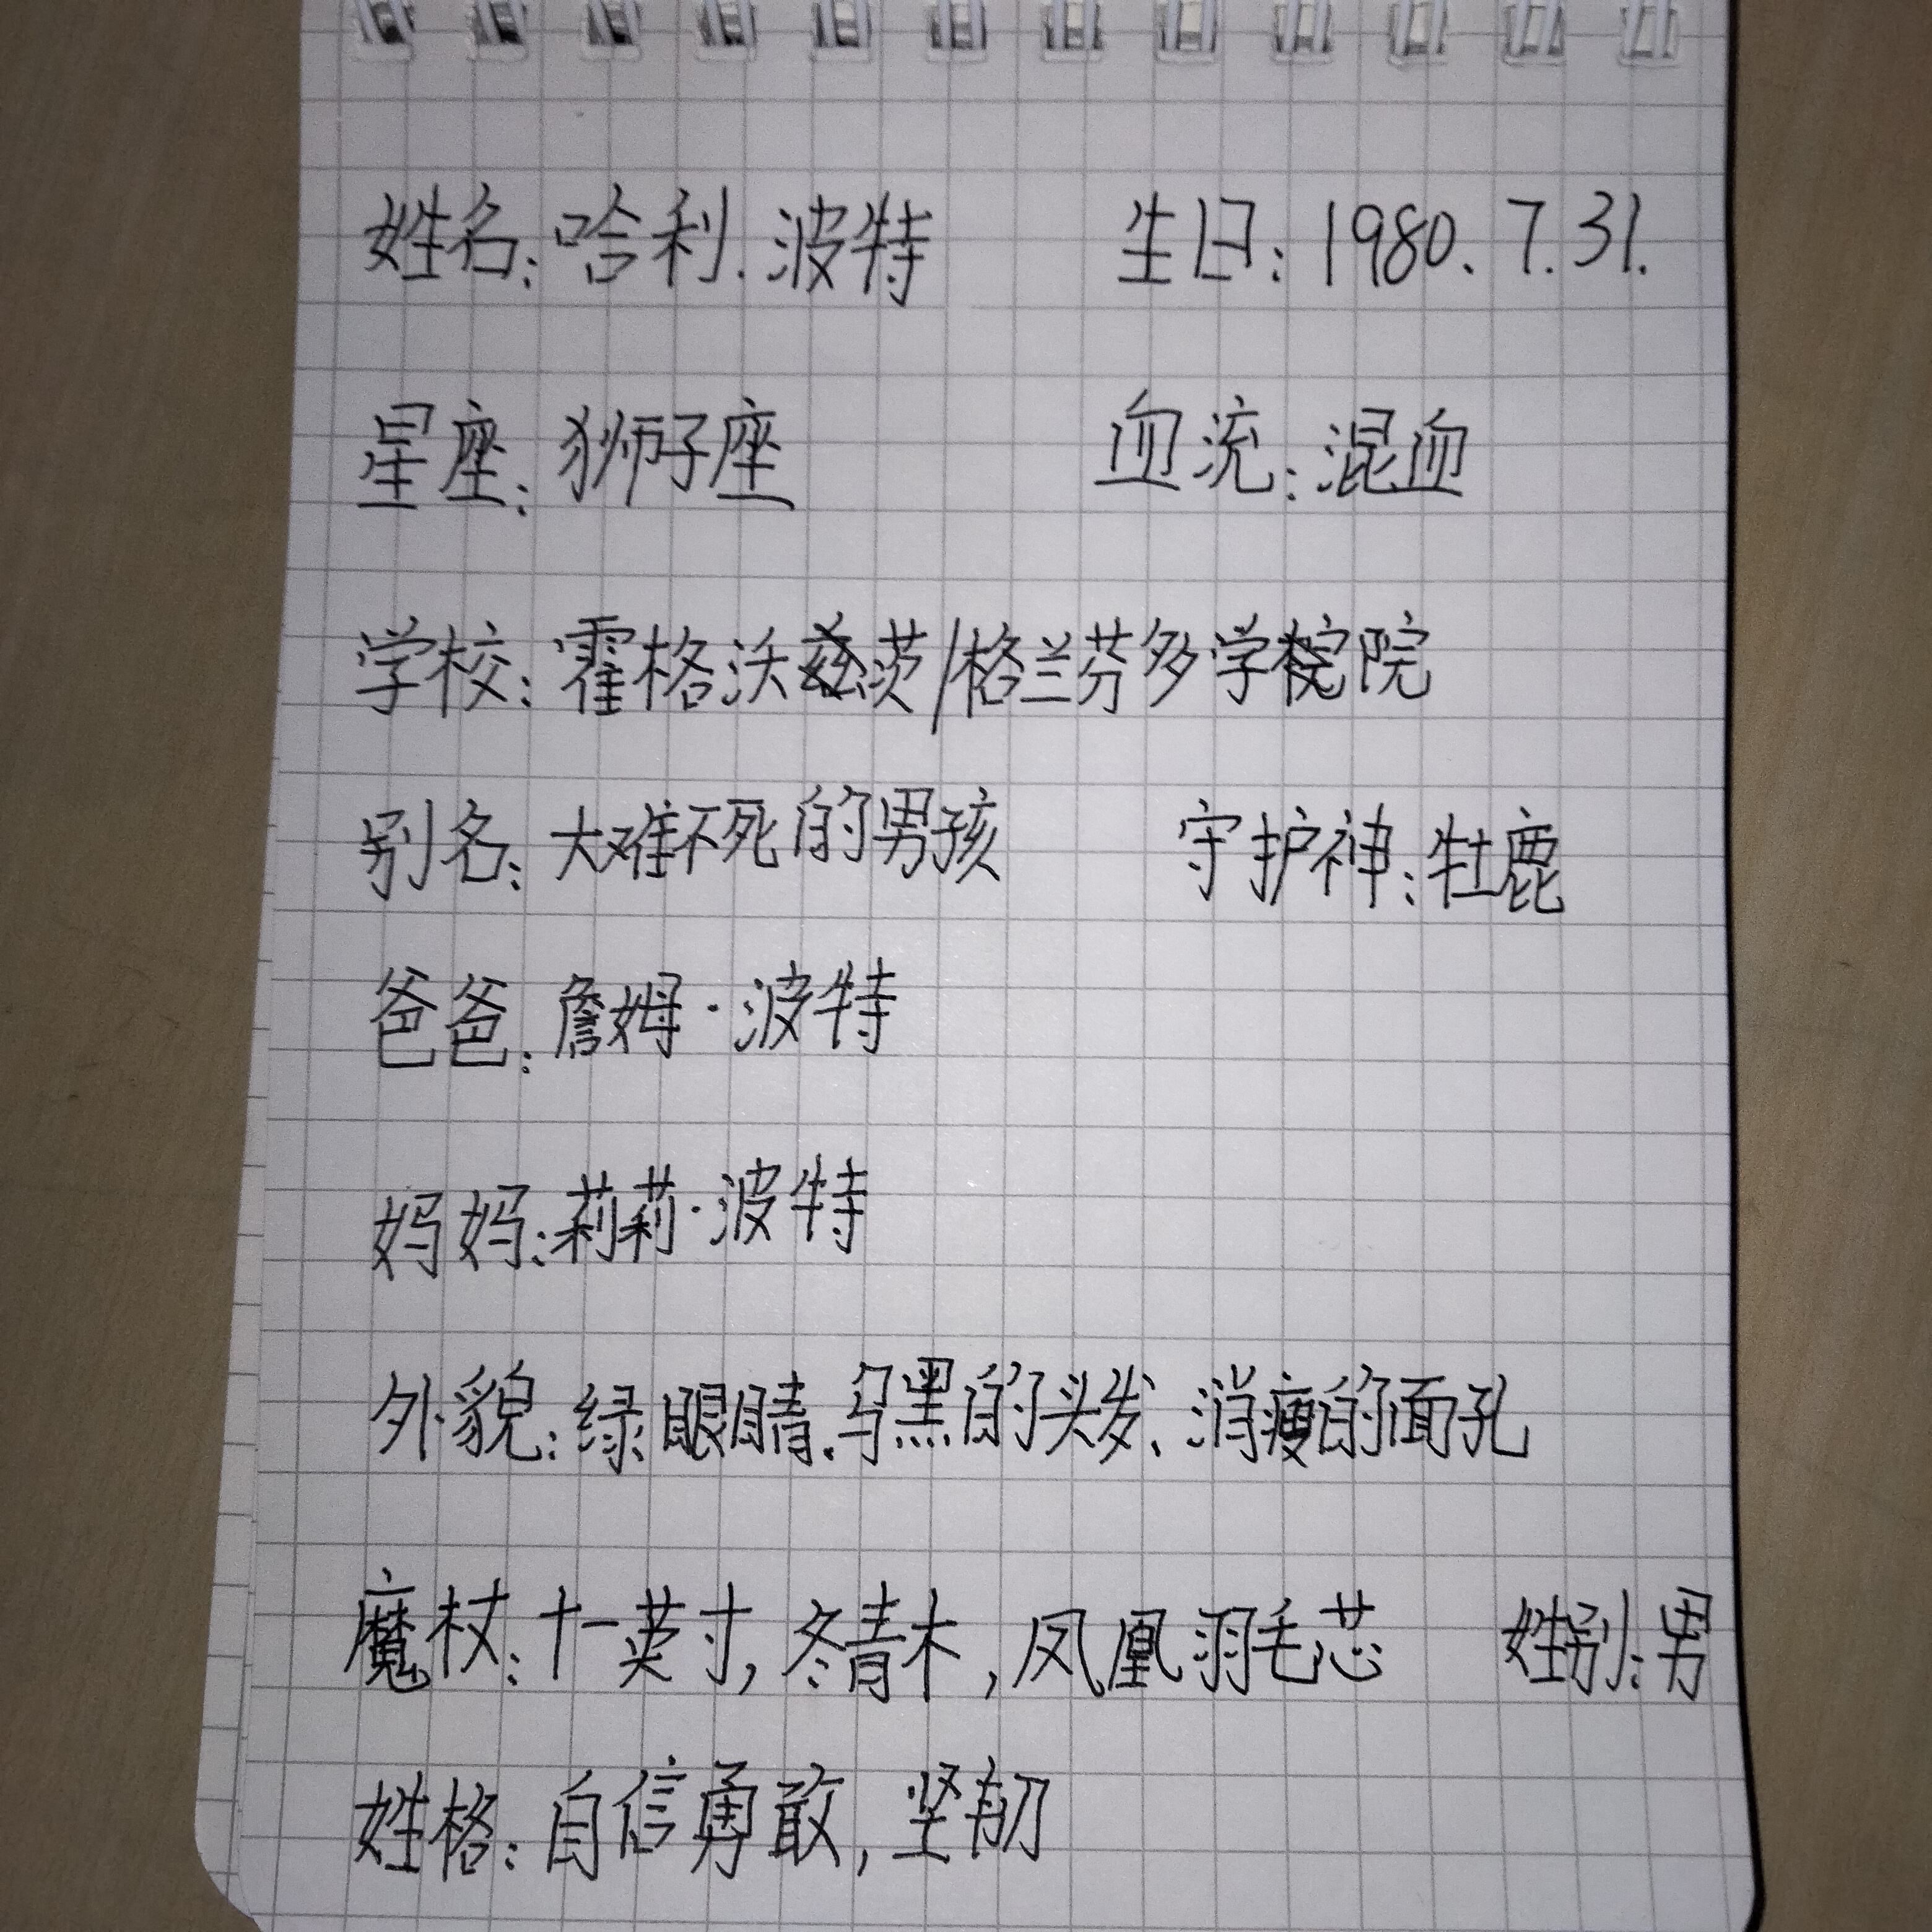 姓名:哈利.波特 生日:1980.7.31.
星座:狮子座 血流:混血
学校:霍格沃兹茨/格兰芬多学院
别名:大难不死的男孩 守护神:牡鹿
爸爸:詹姆·波特
妈妈:莉莉·波特
外貌:绿眼睛.乌黑的头发、消瘦的面孔
魔杖:十一英寸,冬青木,凤凰羽毛芯 姓别:男
姓格:自信勇敢,坚韧